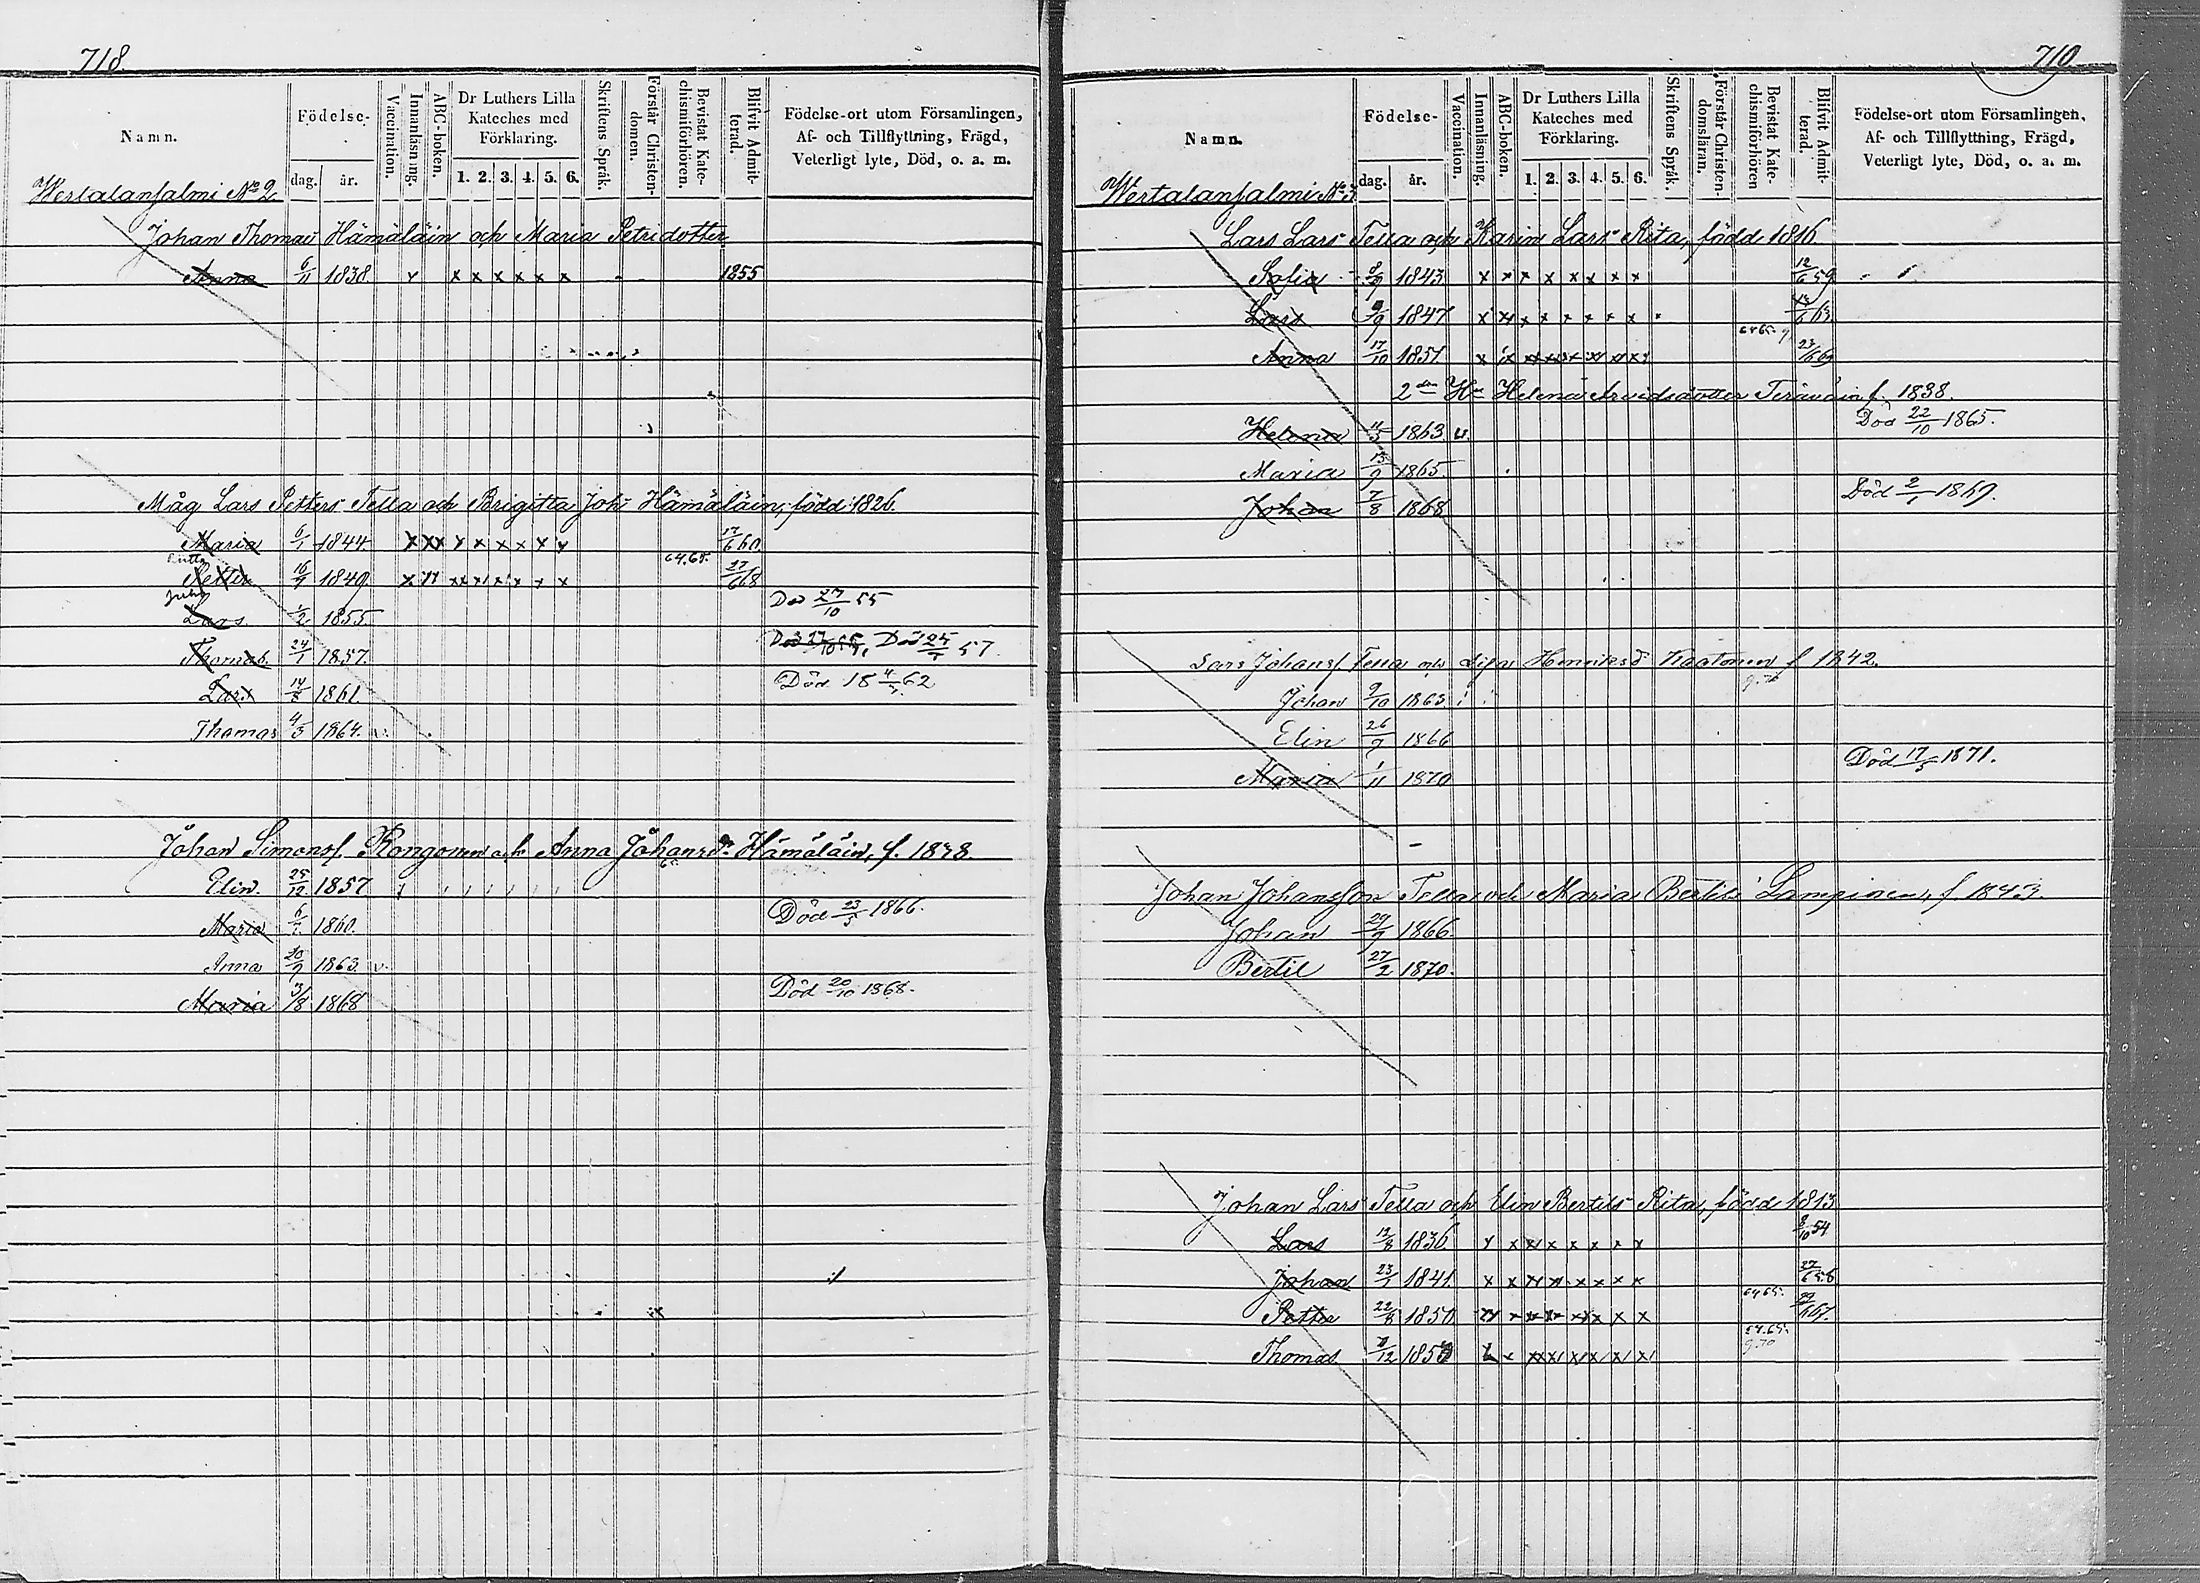 718.
Namn.
Födelse-
dag. år.
Vaccination.
Innanläsning.
ABC-boken.
Dr Luthers Lilla Kateches med Förklaring.
1. 2. 3. 4. 5. 6.
Skriftens Språk.
Förstår Christendomen.
Bevistat Katechismiförhören.
Blifvit Admitterad.
Födelse-ort utom Församlingen, Af- och Tillflyttning, Frägd, Veterligt lyte, Död, o. a. m.
Wertalansalmi No 2
Johan Thomas Hämäläin och Maria Petridotter
Anna 6/11 1838. x x x x x x 1855
Måg Lars Petters Tella och Brigitta Joh: Hämäläin, född 1826.
Maria 6/1 1844. x x x x x x x x 17/6 60.
Petter 16/9 1849. x x x x x x x 64.65. 27/6 68
Lars 1/2 1855. Död 27/10 55
Thomas 24/1 1857. Död 25/5 57.
Lars 14/8 1861. Död 18 4/5 62
Thomas 4/3 1864. v.
Johan Simonsf. Rongonen och Anna Johansdr Hämäläin, f. 1838.
Elin. 25/12 1857
Maria 6/7 1860. Död 23/5 1866.
Anna 20/9 1863. v.
Maria 3/8 1868 Död 20/10 1868.
719
Namn.
Födelse-
dag. år.
Vaccination.
Innanläsning.
ABC-boken.
Dr Luthers Lilla Kateches med Förklaring.
1. 2. 3. 4. 5. 6.
Skriftens Språk.
Förstår Christendomsläran.
Bevistat Katechismiförhören
Blifvit Admitterad.
Födelse-ort utom Församlingen, Af- och Tillflyttning, Frägd, Veterligt lyte, Död, o. a. m.
Wertalansalmi No 3
Lars Lars Tella och Karin Lars Rita, född 1816
Sofia 8/9 1843 x x x x x x x x 12/6 59
Lars 8/9 1847 x x x x x x x x
Anna 17/10 1851. x x x x x x x x 64 65. 23/6 69
2den Hu Helena Arvidsdotter Teräväin f. 1838.
Helena 11/5 1863 v. Död 22/10 1865.
Maria 15/9 1865
Johan 7/8 1868 Död 2/1 1869.
Lars Johansf Tella och Lisa Henriksd Kaatonen f 1842.
Johan 9/10 1863
Elin 26/9 1866
Maria 1/11 1870 Död 17/5 1871.
Johan Johansson Tella och Maria Bertils Lampinen, f. 1843.
Johan 29/9 1866
Bertil 27/2 1870.
Johan Lars Tella och Elin Bertils Rita, född 1813
Lars 12/8 1836 x x x x x x x x 8/10 54
Johan 23/1 1841. x x x x x x x x
Petter 22/8 1850 x x x x x x x x 64 65.
Thomas 7/12 1858 x x x x x x x 64.65. 9.70